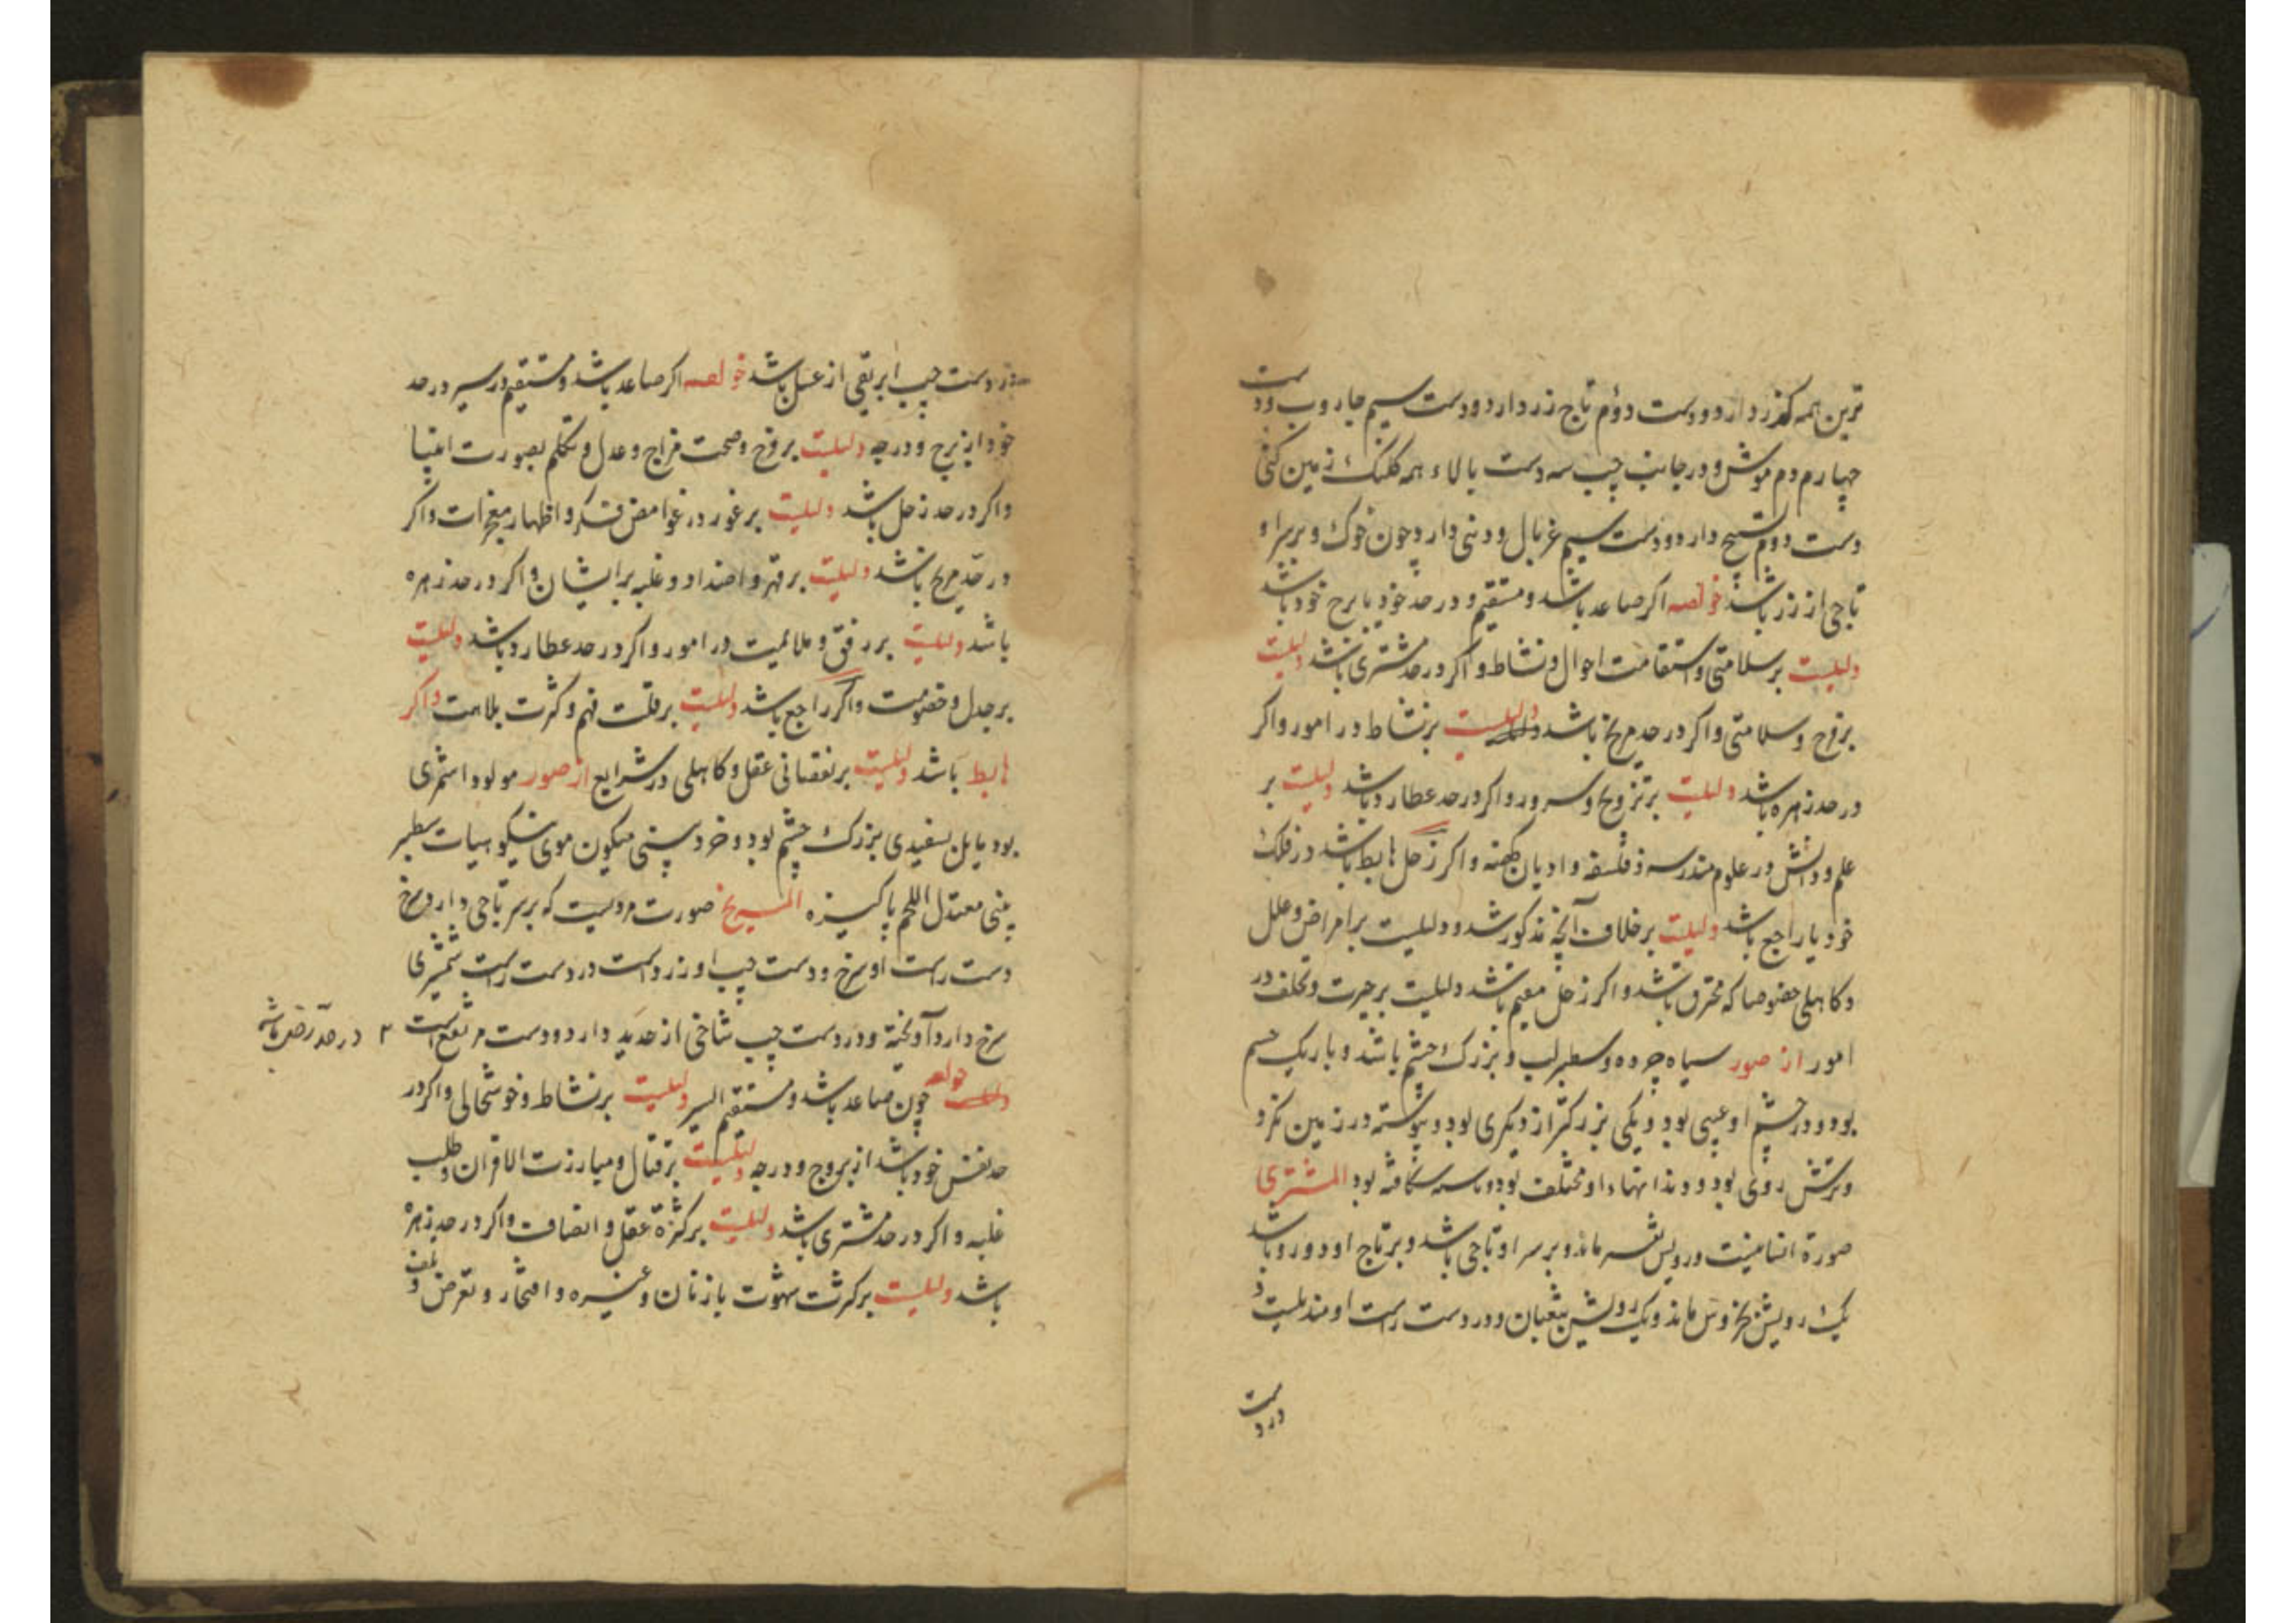 ترین همه کفر دارد و دست دوم تاج زر دارد و دست سیم جاروب و دست
چهارم دم موش و در جانب چپ سه دست بالاء همه کلنک زمین کنی
دست دوم تسبیح دارد و دست سیم غربال و دنی دارد چون خوک و بر سر او
تاجی از زر باشد خواصه اکر صاعد باشد و مستقیم و در حد خود یا برج خود باشد
دلیلست بر سلامتی و استقامت احوال و نشاط و اکر در حد مشتری باشد دلیلست
بر فرح و سلامتی و اکر در حد مریخ باشد دلیلست بر نشاط در امور و اکر
در حد زهره باشد دلیلست بر تزویج و سرور و اکر در حد عطارد باشد دلیلست بر
علم و دانش در علوم مندرسه و فلسفه و ادیان کهنه و اکر زحل هابط باشد در فلک
خود یا راجع باشد دلیلست بر خلاف آنچه مذکور شد و دلیلست بر امراض و علل
و کاهلی خصوصا که محترق باشد و اکر زحل مقیم باشد دلیلست بر حیرت و تخلف در
امور از صور سیاه چرده و سطبر لب و بزرک چشم باشد و باریک جسم
بود و در چشم او عیبی بود و یکی بزرکتر از دیکری بود و پیوسته در زمین نکرد
و ترش روی بود و دندانهاء او مختلف بود و شکافته بود المشتری
صورة انسانیست رویش بنسر ماند و بر سر او تاجی باشد و بر تاج او دو رو باشد
یک رویش بخروس ماند و یک رویش بثعبان و در دست راست او مندیلیست و
در دست
در دست چپ ابریقی از عسل باشد خواصه اکر صاعد باشد و مستقیم در سیر در حد
خود از برج و درجه دلیلست بر فرح و صحت مزاج و عدل و تکلم بصورت انبیا
و اکر در حد زحل باشد دلیلست بر غور در غوامض فکر و اظهار معجزات و اکر
در حد مریخ باشد دلیلست بر قهر و اضداد و غلبه بر ایشان و اکر در حد زهره
باشد دلیلست بر رفق و ملائمیت در امور و اکر در حد عطارد باشد دلیلست
بر جدل و خصومت و اکر راجع باشد دلیلست بر قلت فهم و کثرت بلاهت و اکر
هابط باشد دلیلست بر نقصانی عقل و کاهلی در شرایع از صور مولود اشقری
بود مایل بسفیدی بزرک چشم بود و خرد بینی میکون موی نیکو هیات سطبر
بینی معتدل اللحم پاکیزه المریخ صورت مردیست که بر سر تاجی دارد سرخ
دست راست او سرخ و دست چپ او زرد است در دست راست شمشیری
سرخ دارد آویخته و در دست چپ شاخی از حدید دارد و دست مرتفع است
خواصه چون صاعد باشد و مستقیم السیر دلیلست بر نشاط و خوشحالی و اکر در
حد نفس خود باشد از بروج و درجه دلیلست بر قتال و مبارزت الاقران و طلب
غلبه و اکر در حد مشتری باشد دلیلست بر کثرة عقل و انصاف و اکر در حد زهره
باشد دلیلست بر کثرت شهوت با زنان و غیره و افتخار و تعرض و